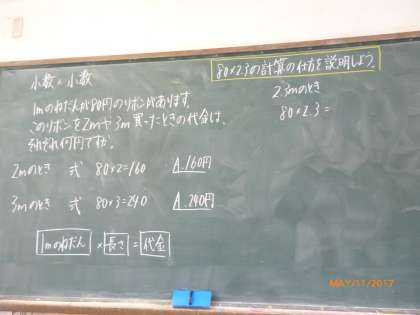 小数×小数
1mのねだんが80円のリボンがあります。
このリボンを2mや3m買ったときの代金は、
それぞれ何円ですか。
2mのとき 式 80×2=160 A.160円
3mのとき 式 80×3=240 A.240円
1mのねだん × 長さ = 代金
80×2.3の計算の仕方を説明しよう。
2.3mのとき
80×2.3=
MAY/11/2017